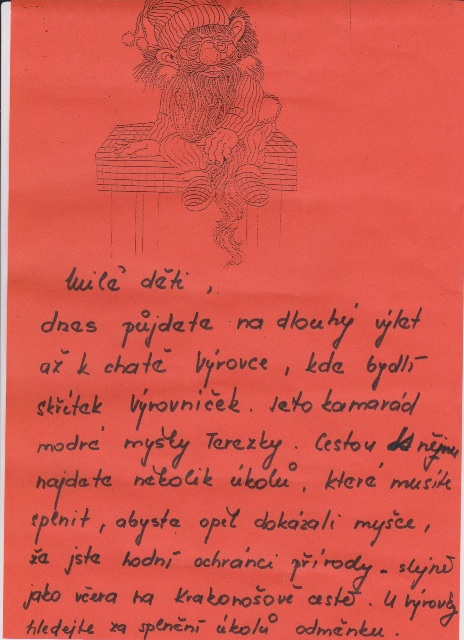 Milé děti,
dnes půjdete na dlouhý výlet
až k chatě Výrovce, kde bydlí
skřítek Výrovníček. Jeto kamarád
modré myšky Terezky. Cestou k němu
najdete několik úkolů, které musíte
splnit, abyste opět dokázali myšce,
že jste hodní ochránci přírody - stejně
jako včera na Krakonošově cestě. U Výrovky
hledejte za splnění úkolů odměnku.